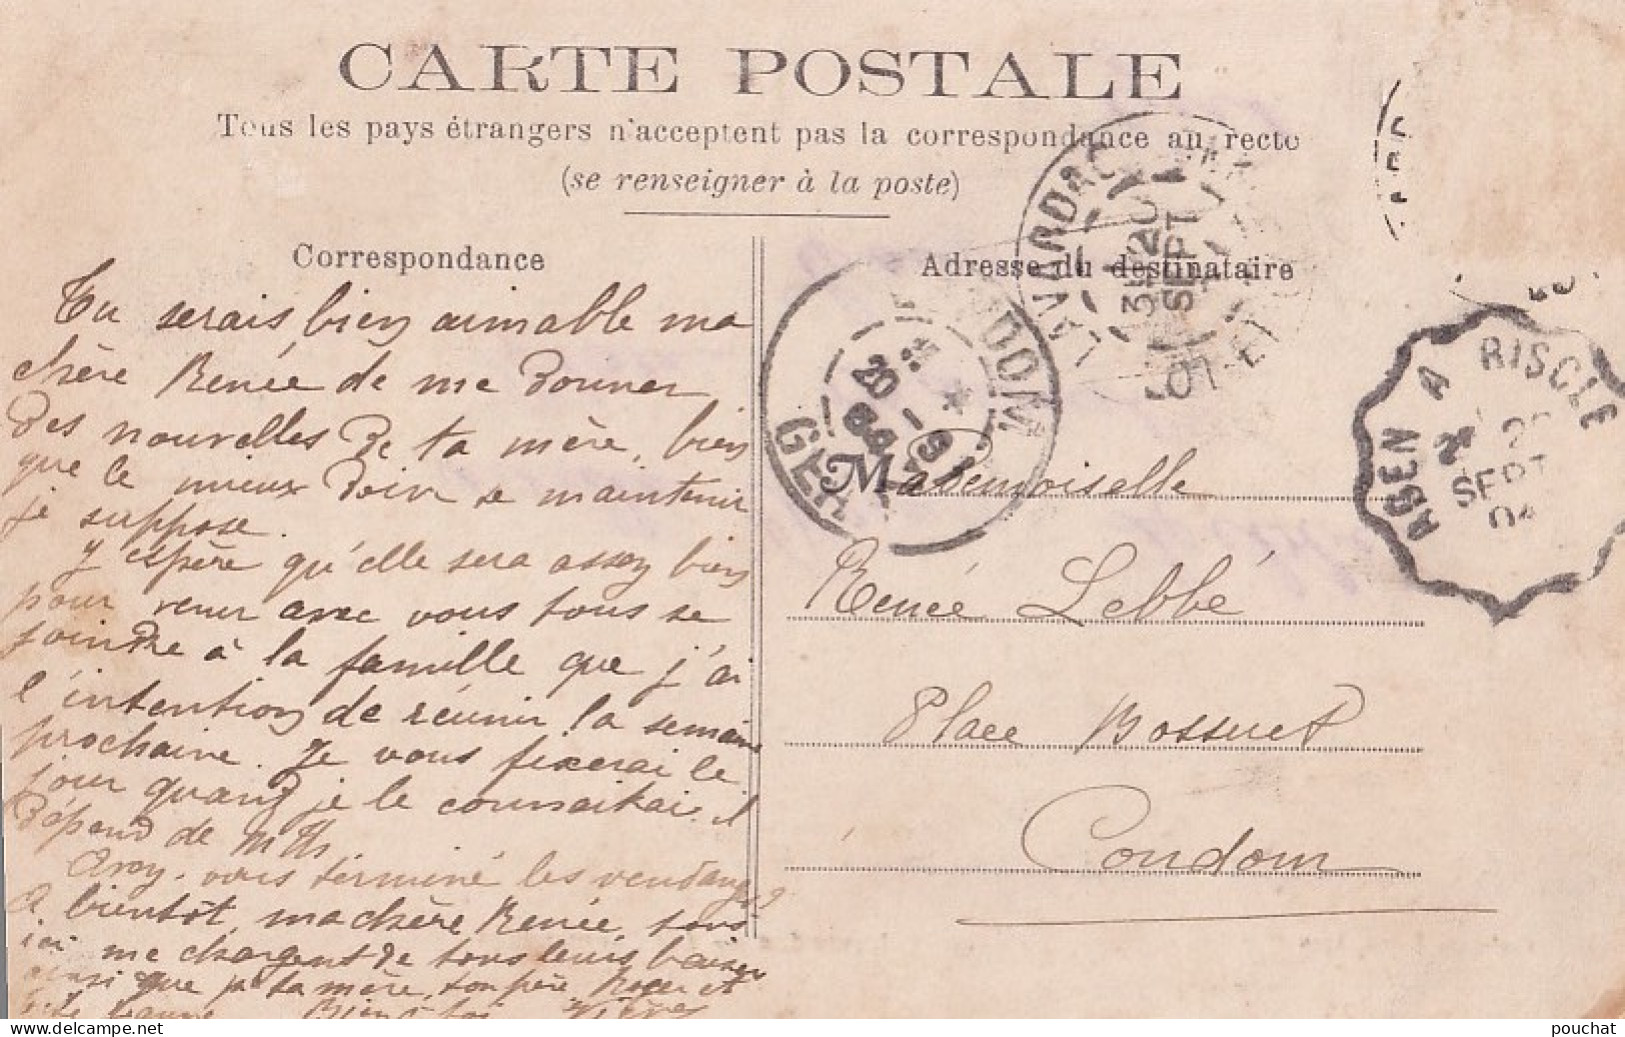 CARTE POSTALE
Tous les pays étrangers n'acceptent pas la correspondance au recto
(se renseigner à la poste)
Correspondance
Adresse du destinataire
Tu serais bien aimable ma
chère Renée de me donner
des nouvelles de ta mère, bien
que le mieux doive se maintenir
je suppose.
J'espère qu'elle sera assez bien
pour venir avec vous tous se
joindre à la famille que j'ai
l'intention de réunir la semaine
prochaine. Je vous fixerai le
jour quand je le connaitrai. il
dépend de
Avez-vous terminé les vendanges?
A bientôt, ma chère Renée, tous
ici me chargent de tous leurs baisers
ainsi que ta mère, ton père, Roger et
Bien à toi
Mademoiselle
Renée Lebbé
Place Bossuet
Condom
LAVARDAC
3E 20
SEPT
LOT-ET-G
CONDOM
20 -9
04
GERS
AGEN A RISCLE
20
SEPT
04
pouchat